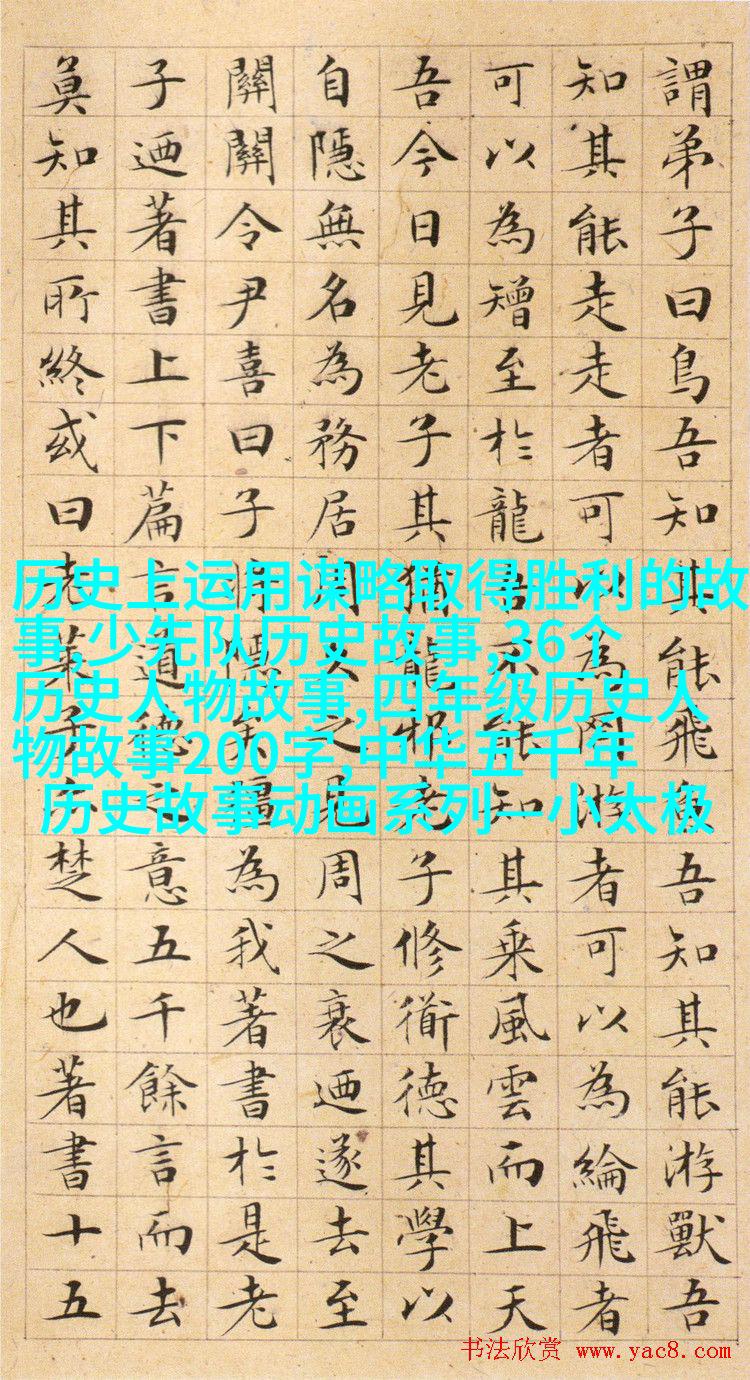 謂弟子曰鳥吾知其能飛魚吾知其能游獸吾
知其能走走者可以為罔游者可以為綸飛者
可以為矰至於龍吾不能知其乘風雲而上天
吾今日見老子其猶龍邪老子修衜德其學以
自隱無名為務居周久之見周之衰迺遂去至
關關令尹喜曰子將隱矣彊為我著書於是老
子迺著書上下篇言道德之意五千餘言而去
莫知其所終或曰老萊子亦楚人也著書十五
历史上运用谋略取得胜利的故
事,少先队历史故事,36个
历史人物故事,四年级历史人
物故事200字,中华五千年
历史故事动画系列一小太极
书法欣赏 www.yac8.com